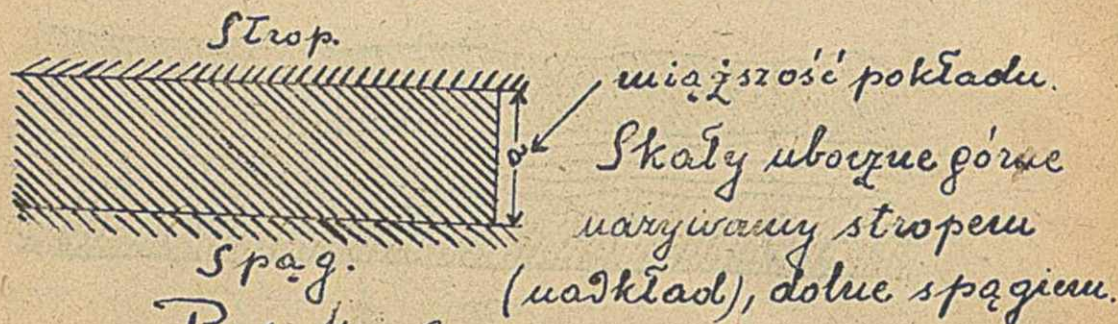 Strop.
miąższość pokładu.
Skały uboczne górne
nazywamy stropem
Spąg.
(nadkład), dolne spągiem.